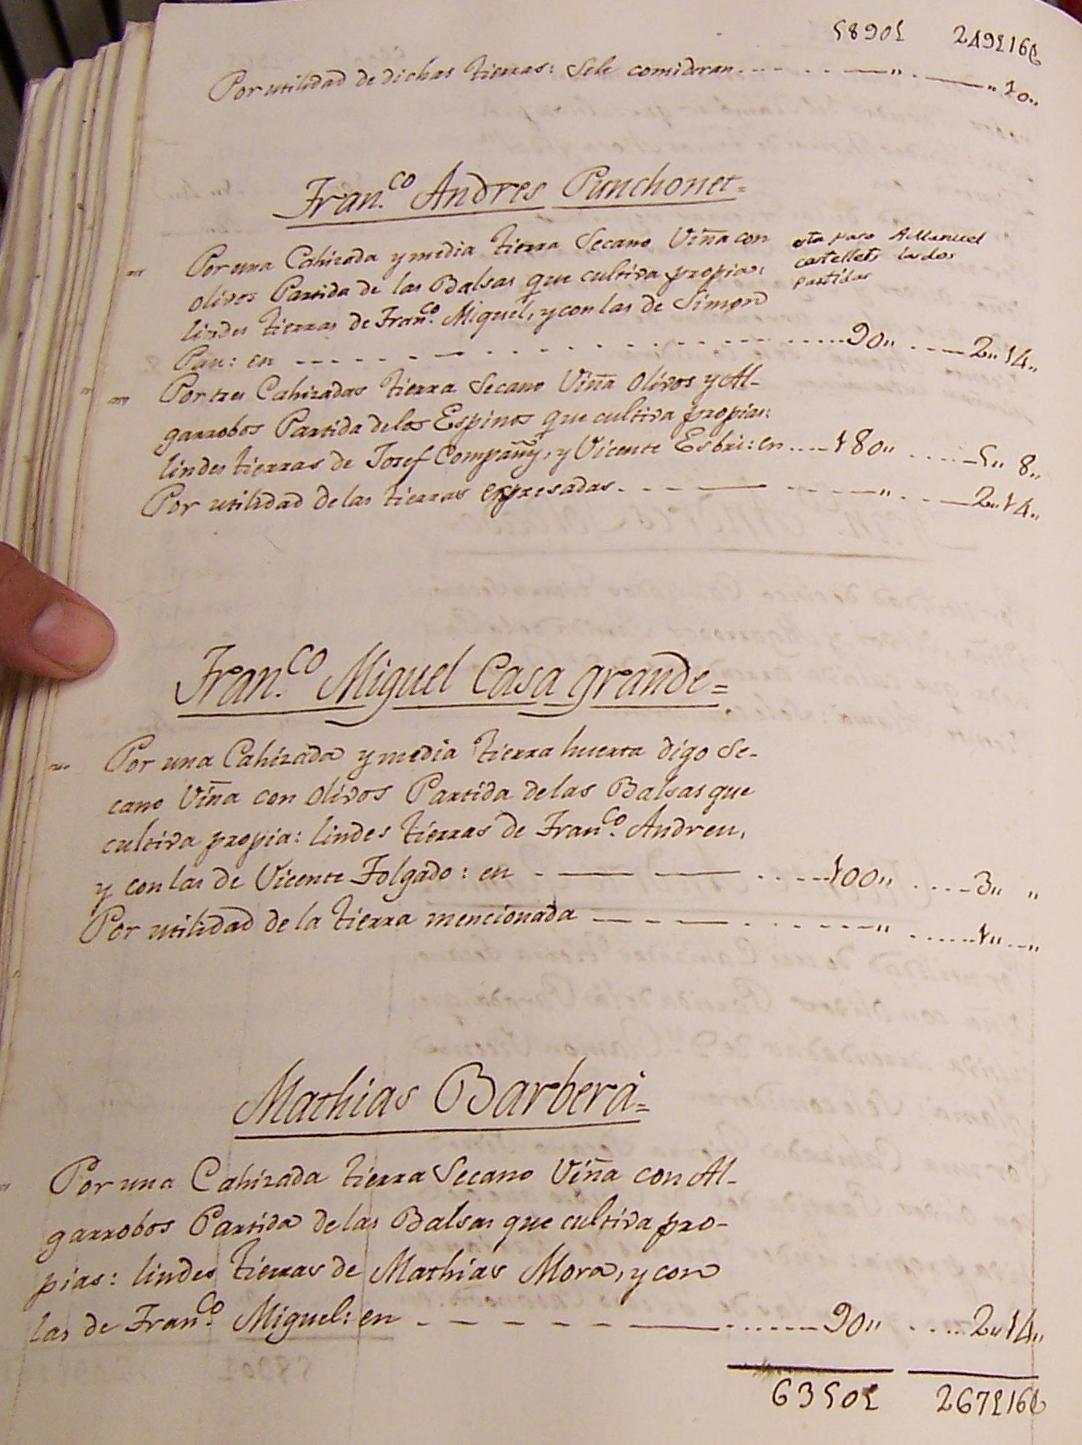 5890£ 249£16₢
Por utilidad de dichas tierras: Sele consideran - - - - „ - - „ 10„
Fran.co Andres Punchonet=
Por una Cahizada y media tierra Secano Viña con
olivos Partida de las Balsas que cultiva propia:
esta paso A Manuel
castellet las dos
partidas
lindes tierras de Fran.co Miguel, y con las de Simon
Pau: en - - - - 90„ - - - - 2„14„
Por tres Cahizadas tierra Secano Viña Olivos y Al-
garrobos Partida de los Espinos que cultiva propias:
lindes tierras de Josef Compañy, y Vicente Esbri: en - - - - 180„ - - - - 5„ 8„
Por utilidad de las tierras expresadas - - - - „ - - - - 2„14„
Fran.co Miguel Casa grande=
Por una Cahizada y media tierra huerta digo Se-
cano Viña con olivos Partida de las Balsas que
cultiva propia: lindes tierras de Fran.co Andreu,
y con las de Vicente Folgado: en - - - - 100„ - - - - 3„ „
Por utilidad de la tierra mencionada - - - - „ - - - - 1„ - - „
Mathias Barberá=
Por una Cahizada tierra Secano Viña con Al-
garrobos Partida de las Balsas que cultiva pro-
pias: lindes tierras de Mathias Mora, y con
las de Fran.co Miguel: en - - - - 90„ - - - - 2„14„
6350£ 267£16₢